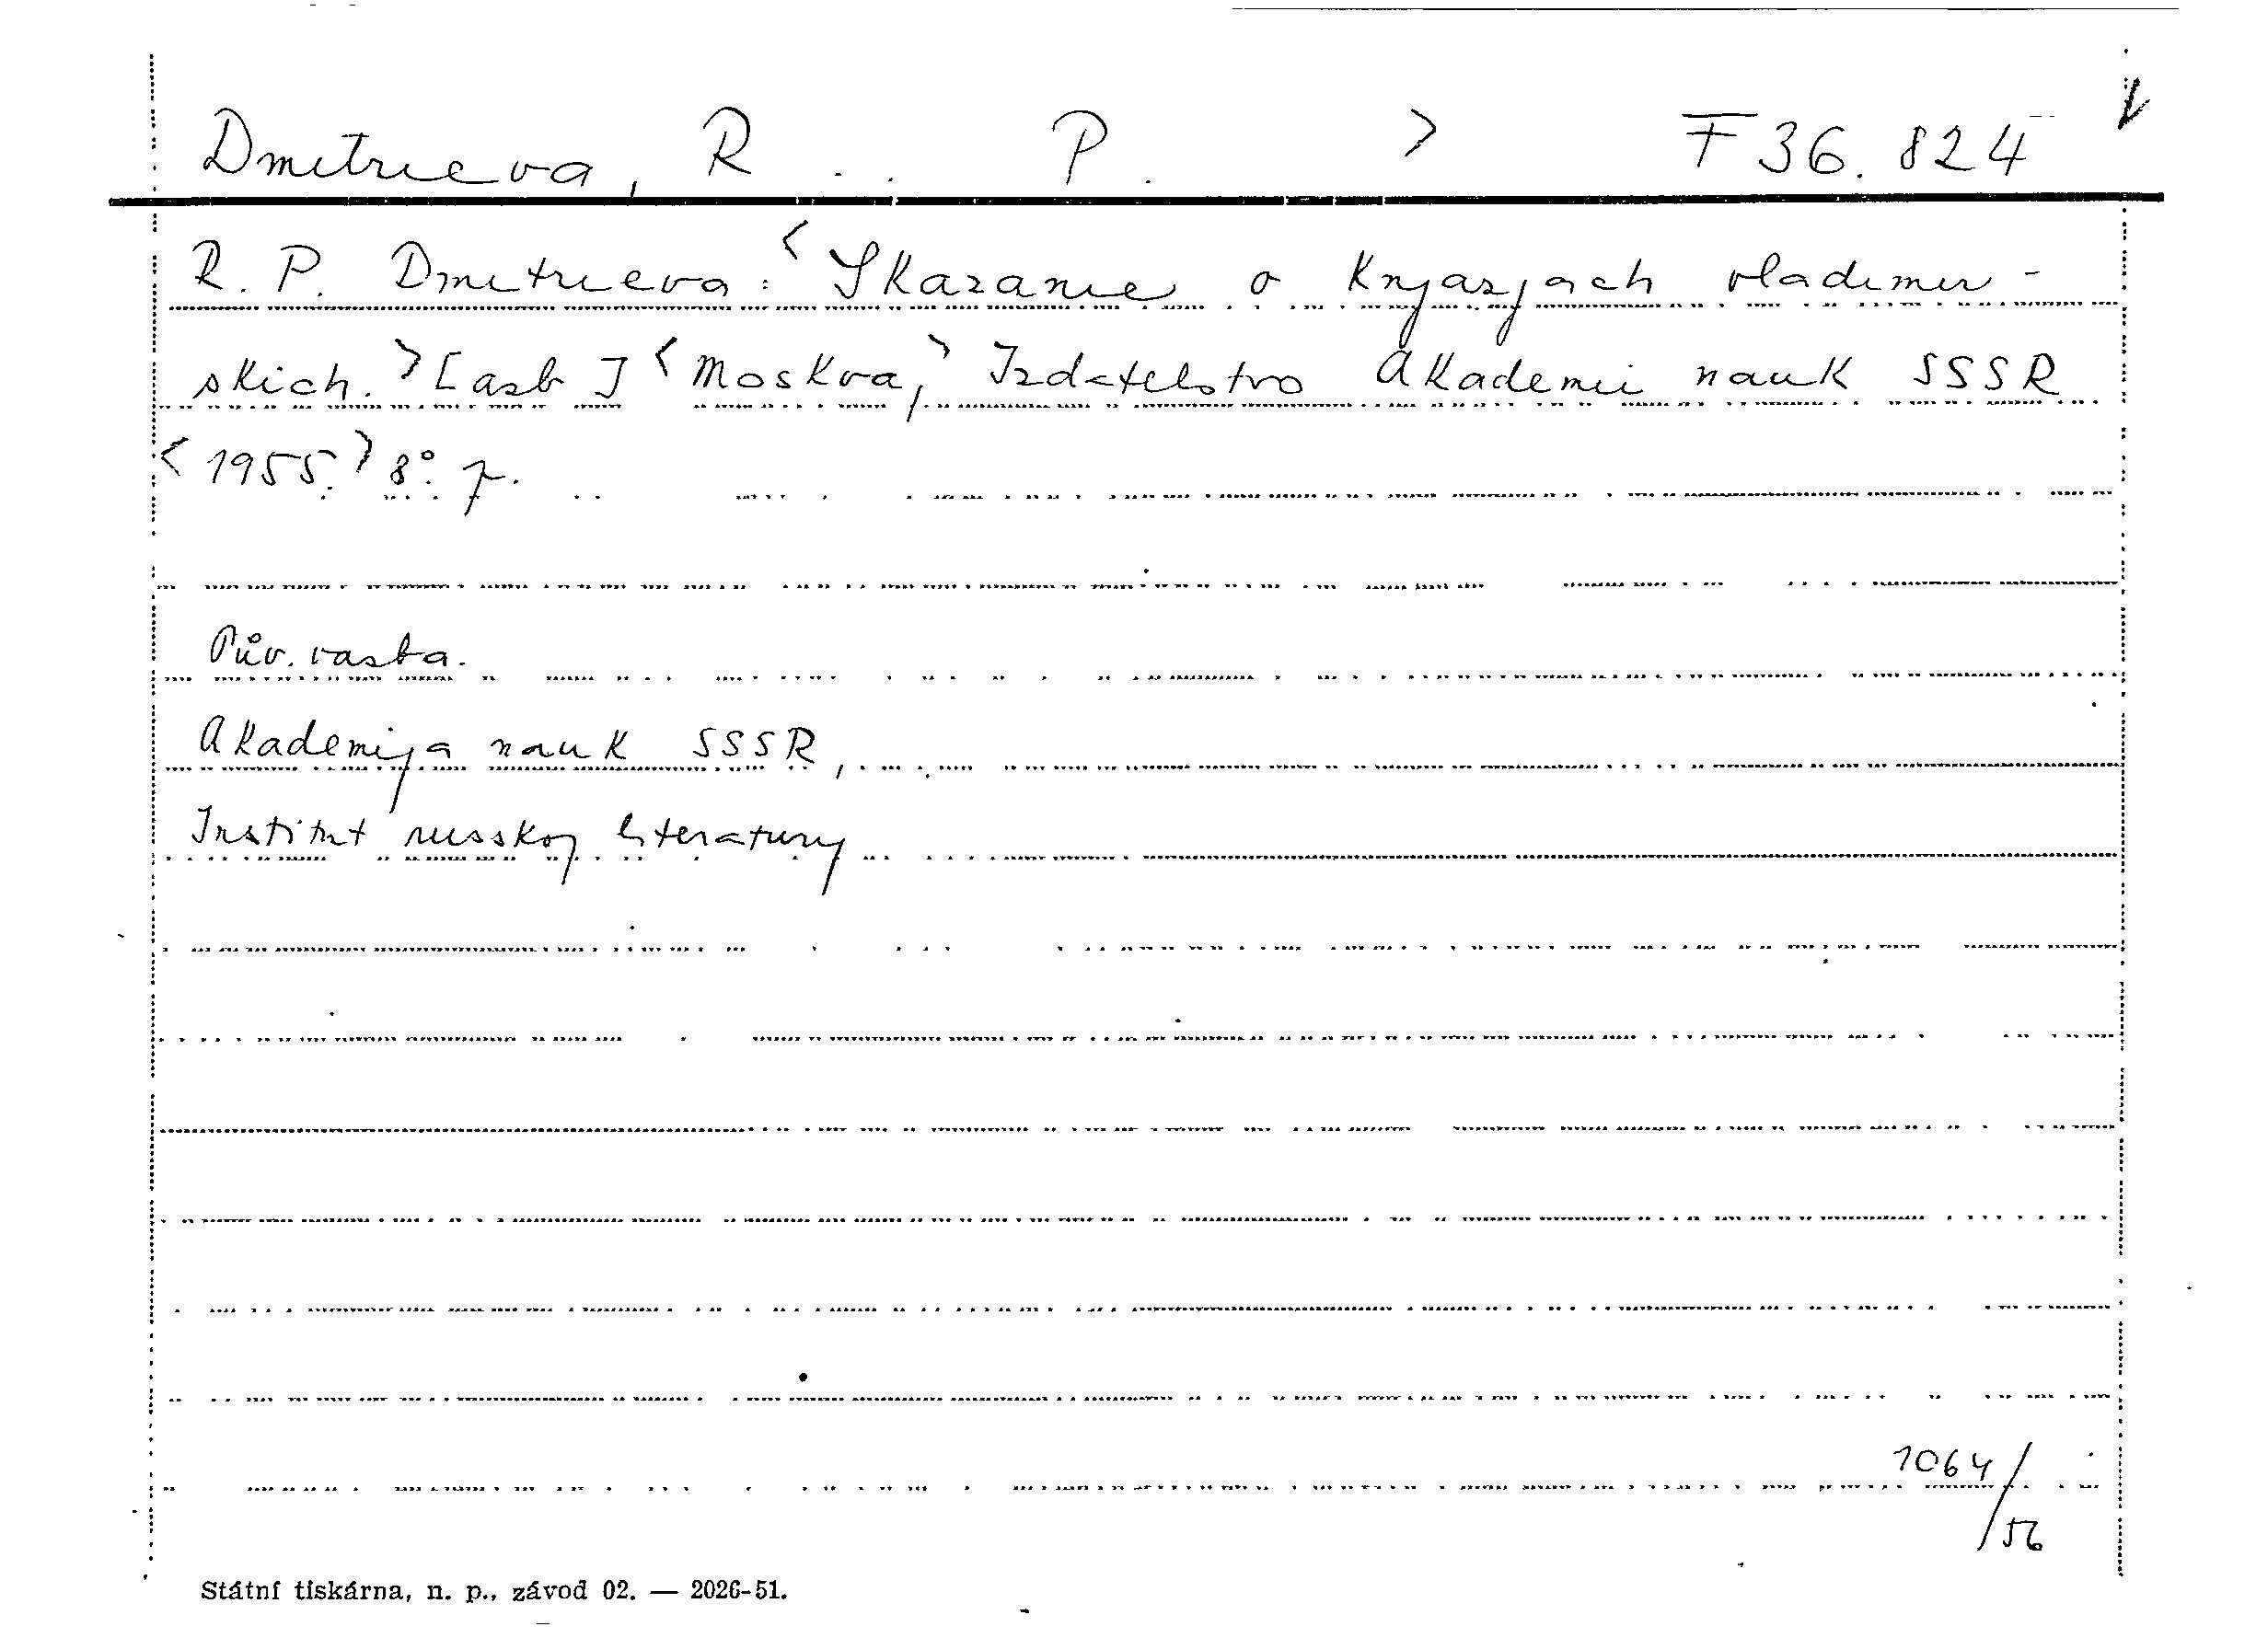 Dmitrieva, R . . P. > F 36.824
R. P. Dmitrieva: < Skazanie o knjazjach vladimir-
skich. > [azb] < Moskva, > Izdatelstvo Akademii nauk SSSR
< 1955. > 8°. p.
Pův. vazba.
Akademija nauk SSSR,
Institut russkoj literatury
1064/
56
Státní tiskárna, n. p., závod 02. — 2026-51.